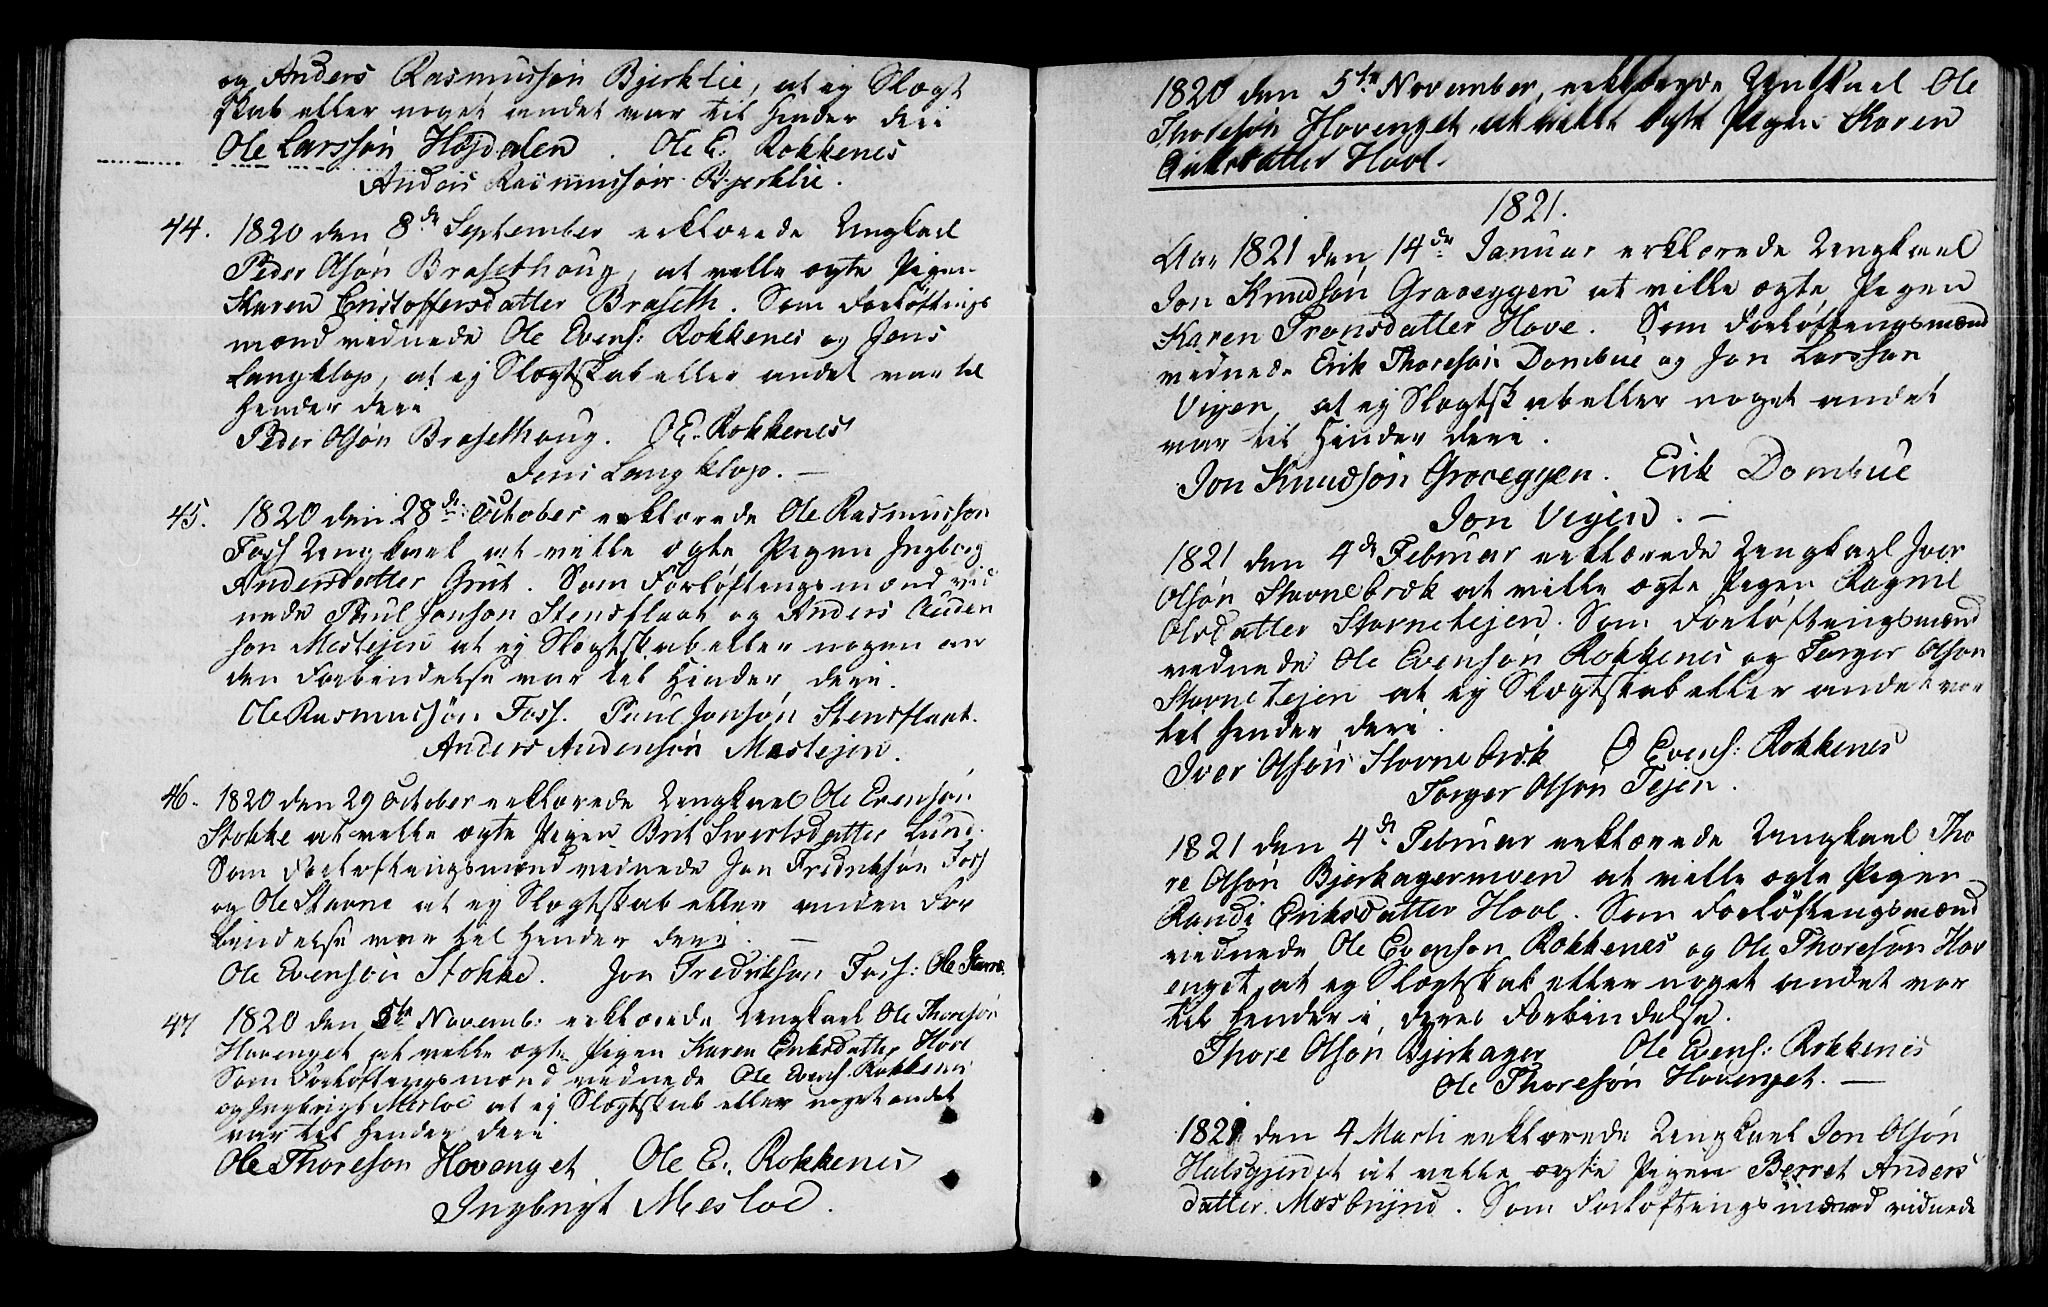 og Anders Rasmussøn Bjerklie, at ej Slægt
skab eller noget andet var til Hinder deri
Ole Larssøn Højdalen. Ole E. Rokkenes
Anders Rasmussøn Bjerklie.
44. 1820 den 8de September erklærede Ungkarl
Peder Olsøn Brasethoug, at ville ægte Pigen
Karen Cristoffersdatter Braseth. Som Forløftnings
mænd vidnede Ole Evens: Rokkenes og Jens
Langklop, at ej Slægtskab eller andet var til
Hinder deri
Peder Olsøn Brasethoug. O E. Rokkenes
Jens Langklop. —
45. 1820 den 28de October erklærede Ole Rasmussøn
Foss Ungkarl at ville ægte Pigen Ingborg
Andersdatter Grut. Som Forløftningsmænd vid
nede Paul Jonsøn Stensflaat og Anders Auden
søn Meslejen at ej Slægtskab eller nogen an
den Forbindelse var til Hinder deri.
Ole Rasmussøn Foss. Paul Jonsøn Stensflaat.
Anders Audensøn Meslejen.
46. 1820 den 29 October erklærede Ungkarl Ole Evensøn
Stokke at ville ægte Pigen Brit Sivertsdatter Lund.
Som Forløftningsmænd vidnede Jon Fredriksøn Foss
og Ole Stavne at ej Slægtskab eller anden For
bindelse var til Hinder deri. —
Ole Evensøn Stokke. Jon Fredriksøn Foss: Ole Stavne
47 1820 den 5te Novemb: erklærede Ungkarl Ole Thoresøn
Hovenget at ville ægte Pigen Karen Eriksdatter Hove
Som Forløftningsmænd vidnede Ole Evens. Rokkenes
og Ingbrigt Mesloe at ej Slægtskab eller noget andet
var til Hinder deri
Ole Thoresøn Hovenget Ole E. Rokkenes
Ingbrigt Mesloe.
1820 den 5te November, erklærede Ungkarl Ole
Thoresøn Hovenget at ville ægte Pigen Karen
Eriksdatter Hove.
1821.
Aar 1821 den 14de Januar erklærede Ungkarl
Jon Knudsøn Graveggen at ville ægte Pigen
Karen Tronsdatter Hove. Som Forløftningsmænd
vidnede Erik Thoresøn Dombue og Jon Larssøn
Vigen, at ej Slægtskab eller noget andet
var til Hinder deri.
Jon Knudsøn Graveggen. Erik Dombue
Jon Vigen. —
1821 den 4de Februar erklærede Ungkarl Iver
Olsøn Stavnebrek at ville ægte Pigen Ragnil
Olsdatter Stavnetejen. Som Forløftningsmænd
vidnede Ole Evensøn Rokkenes og Torger Olsøn
Stavnetejen at ej Slægtskab eller andet var
til Hinder deri.
Iver Olsøn Stavnebrek O Evens: Rokkenes
Torger Olsøn Tejen.
1821 den 4de Februar erklærede Ungkarl Tho
re Olsøn Bjerkagermoen at ville ægte Pigen
Randi Eriksdatter Hove. Som Forløftningsmænd
vidnede Ole Evensøn Rokkenes og Ole Thoresøn Hov
enget, at ej Slægtskab eller noget andet var
til Hinder i deres Forbindelse.
Thore Olsøn Bjerkager Ole Evens: Rokkenes
Ole Thoresøn Hovenget. —
1821 den 4 Marti erklærede Ungkarl Jon Olsøn
Halsgjerdet at ville ægte Pigen Berret Anders
datter Mosbrynd. Som Forløftningsmænd vidnede